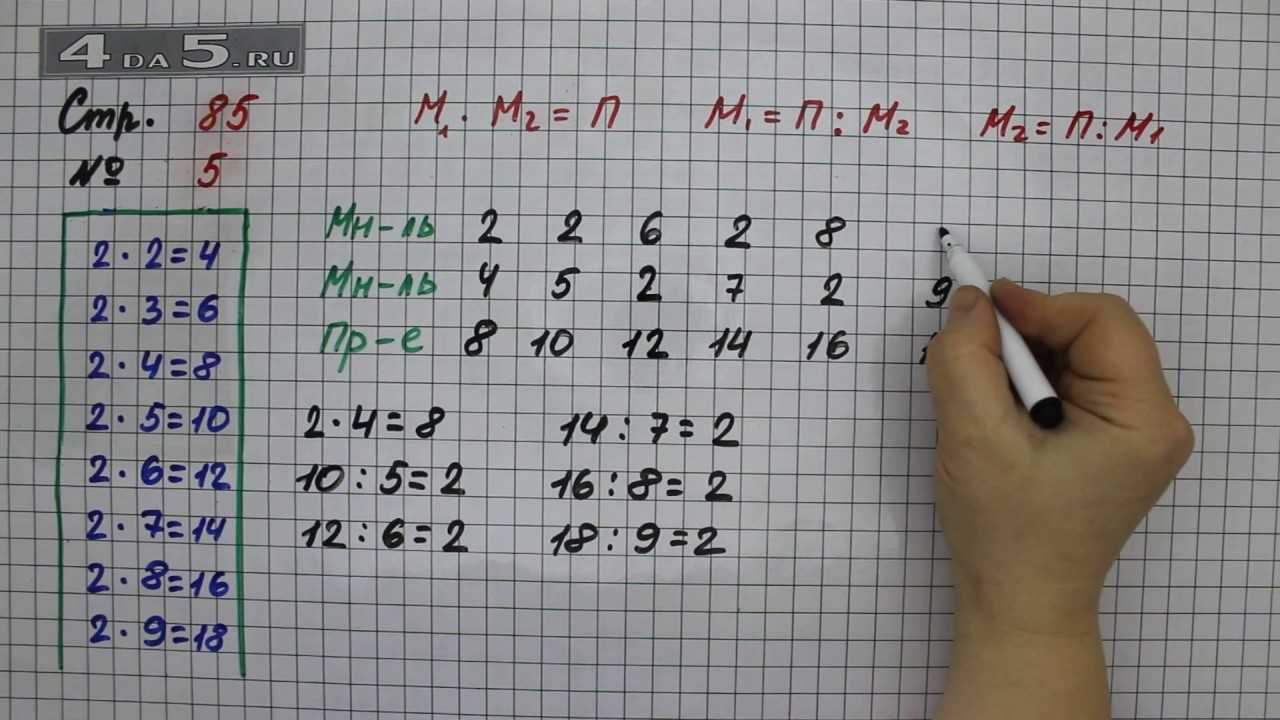 4DA5.RU
Стр. 85
№ 5
М₁ · М₂ = П М₁ = П : М₂ М₂ = П : М₁
2 · 2 = 4
2 · 3 = 6
2 · 4 = 8
2 · 5 = 10
2 · 6 = 12
2 · 7 = 14
2 · 8 = 16
2 · 9 = 18
Мн-ль 2 2 6 2 8
Мн-ль 4 5 2 7 2 9
Пр-е 8 10 12 14 16
2 · 4 = 8 14 : 7 = 2
10 : 5 = 2 16 : 8 = 2
12 : 6 = 2 18 : 9 = 2